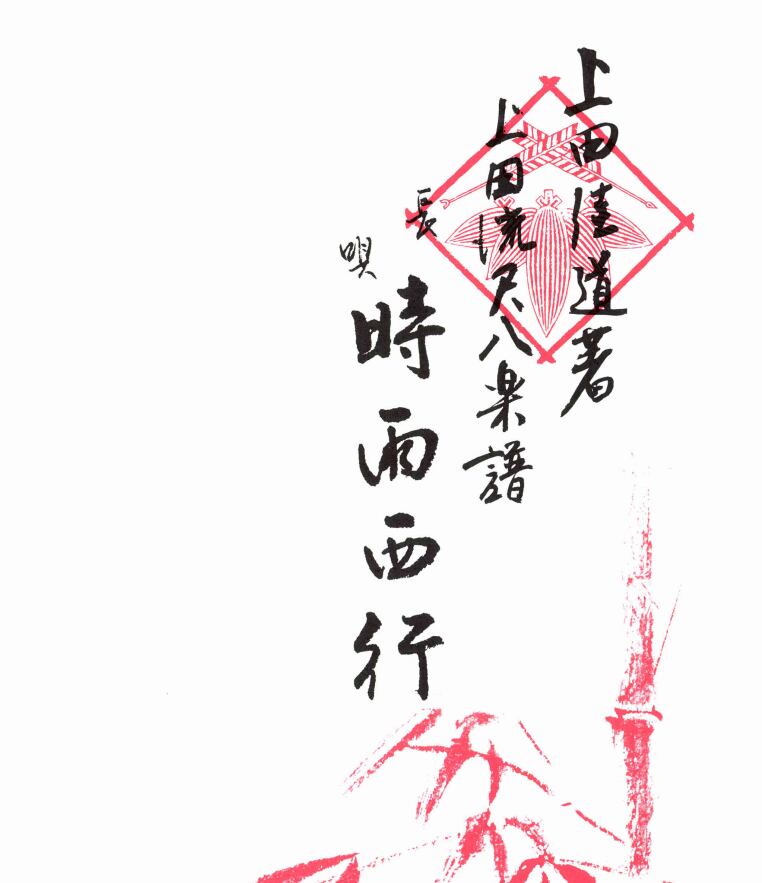 上田佳道著
上田流尺八楽譜
長唄
時雨西行